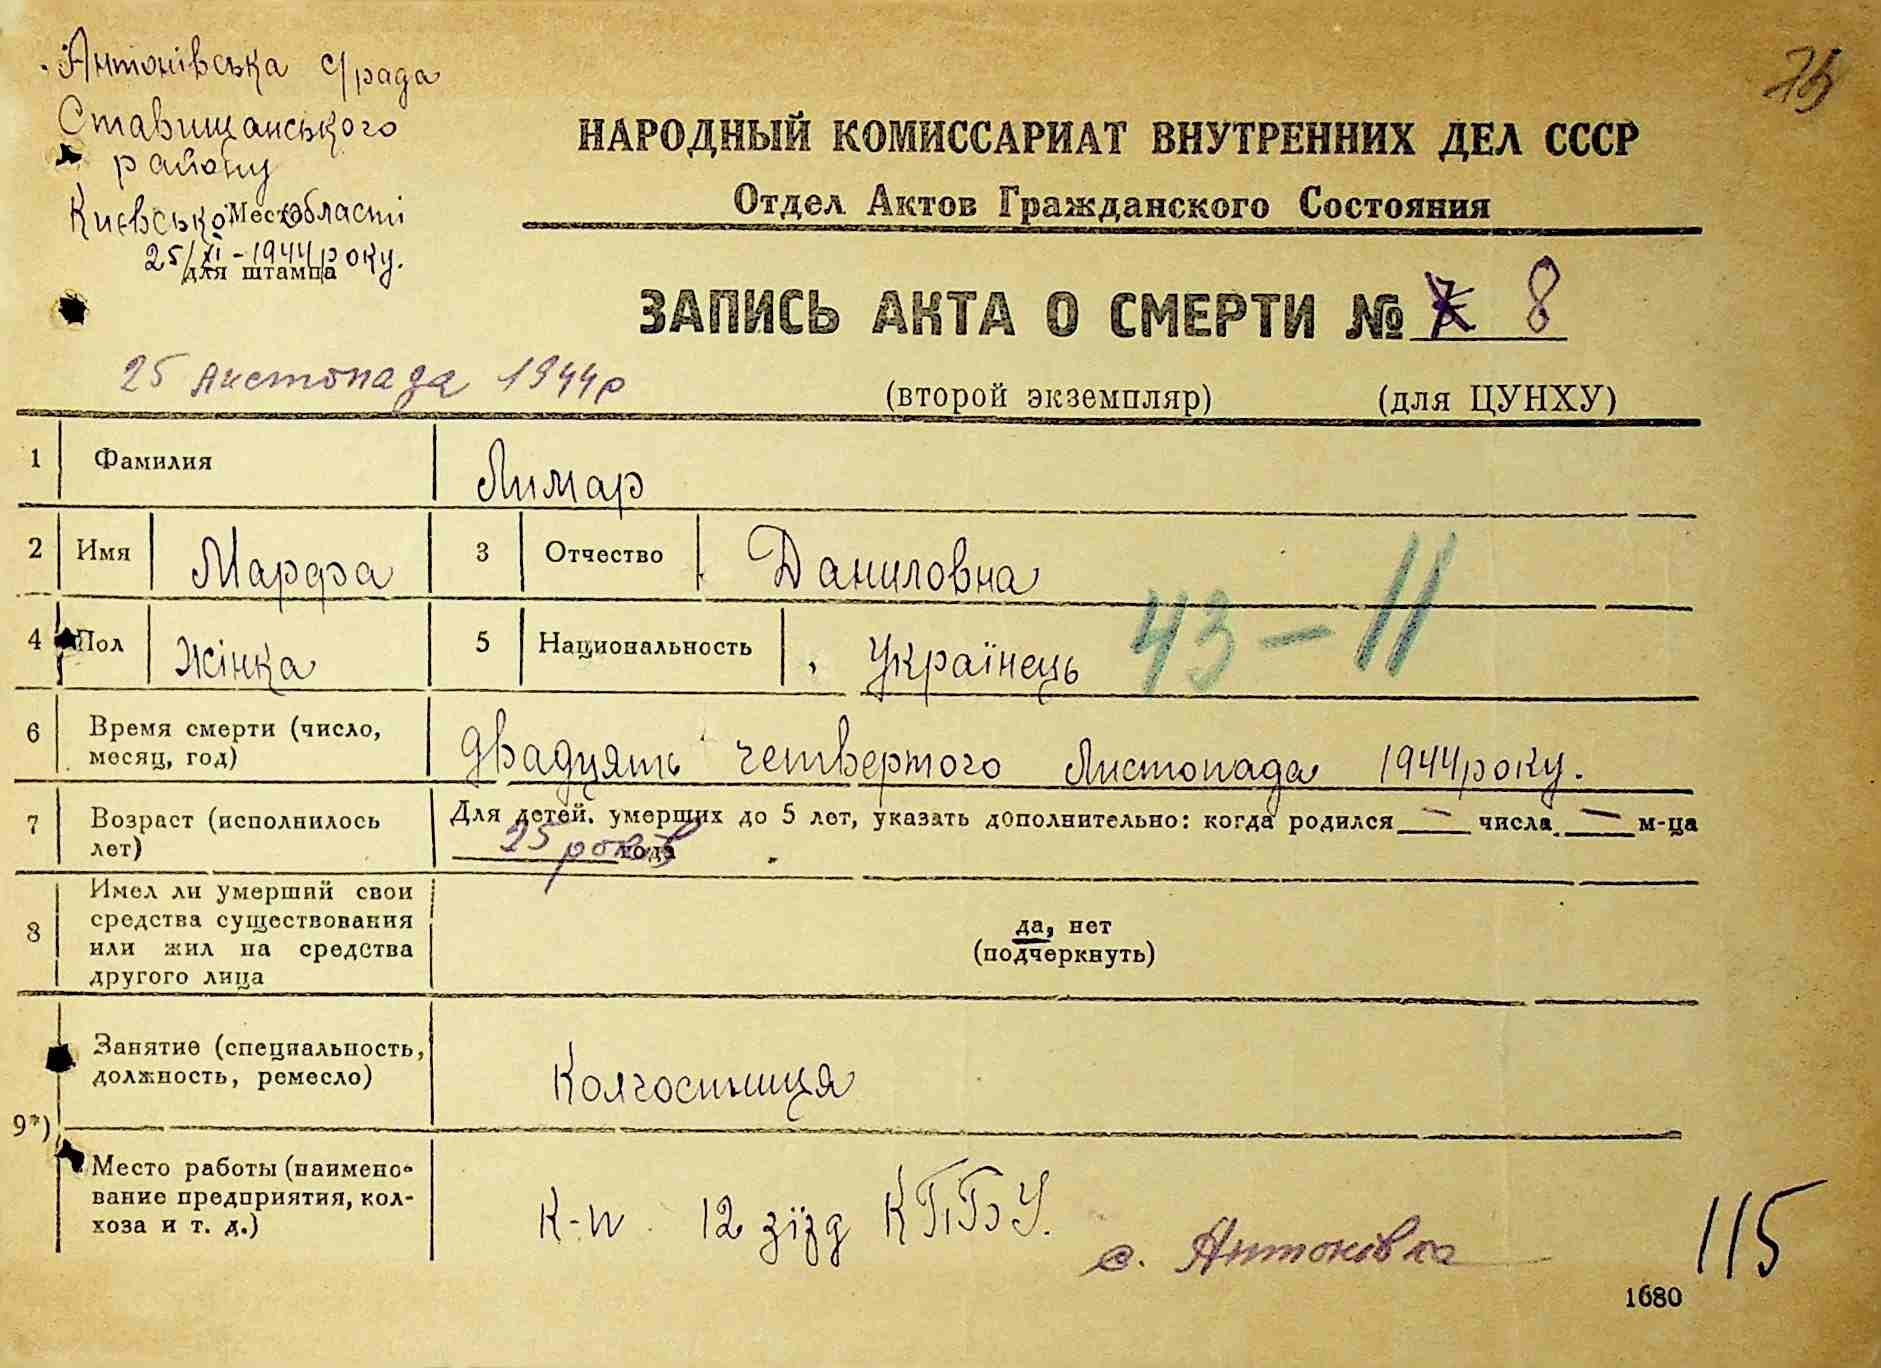 Антонівська с/рада
Ставищанського
району
Києвської області
Место
25/XI - 1944 року.
для штампа
НАРОДНЫЙ КОМИССАРИАТ ВНУТРЕННИХ ДЕЛ СССР
Отдел Актов Гражданского Состояния
ЗАПИСЬ АКТА О СМЕРТИ № 8
25 листопада 1944р
(второй экземпляр) (для ЦУНХУ)
1 Фамилия Лимар
2 Имя Марфа 3 Отчество Даниловна
43-11
4 Пол Жінка 5 Национальность Українець
6 Время смерти (число, месяц, год) двадцять четвертого Листопада 1944 року.
7 Возраст (исполнилось лет) Для детей. умерших до 5 лет, указать дополнительно: когда родился — числа — м-ца
25 років года
8 Имел ли умерший свои средства существования или жил на средства другого лица
да, нет
(подчеркнуть)
9*) Занятие (специальность, должность, ремесло) Колгоспниця
Место работы (наименование предприятия, колхоза и т. д.) К-п 12 зїзд КПБУ. с. Антонівка
115
1680